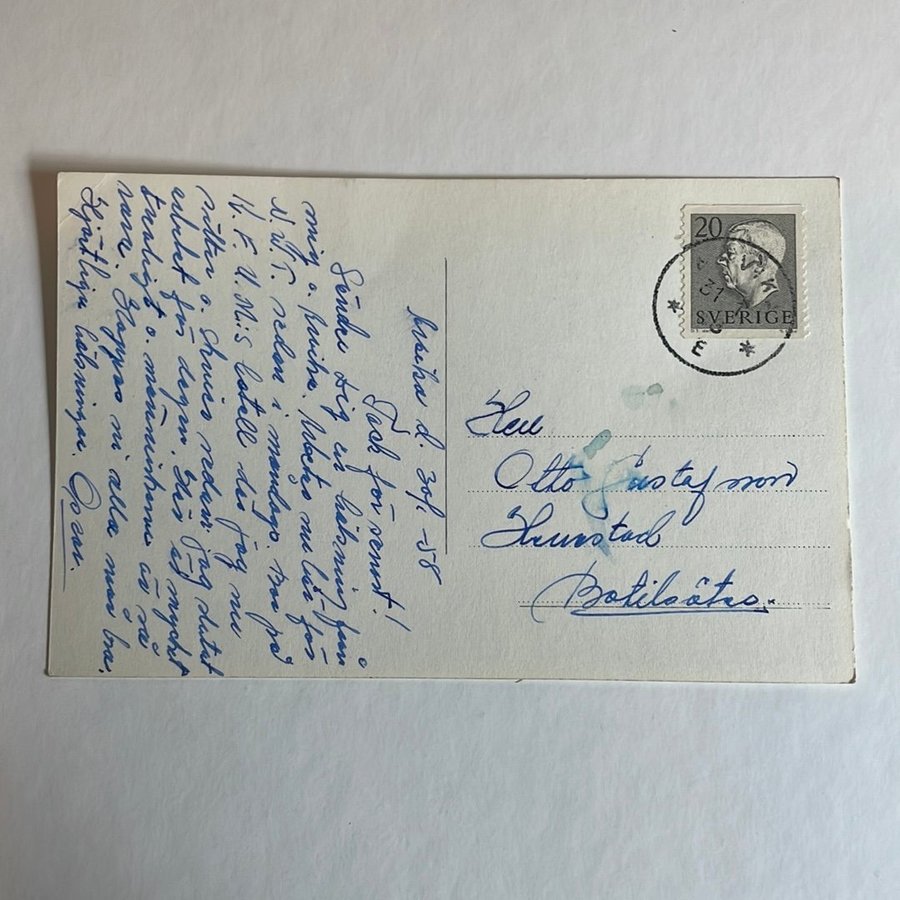 d. 30/1 -58
Tack för senast!
Sänder Dig en hälsning från
mig o.
N.W.T. redan i måndags. Bor på
K.F.U.M:s hotell där jag nu
sitter o. skriver nedan jag slutat
arbetet för dagen. Här är mycket
trevligt o. människorna är så
rara. Hoppas ni alla mår bra.
Hjärtliga hälsningar. Göran.
20
SVERIGE
31
Herr
Otto Gustafsson
Hunstad
Botilsäter.